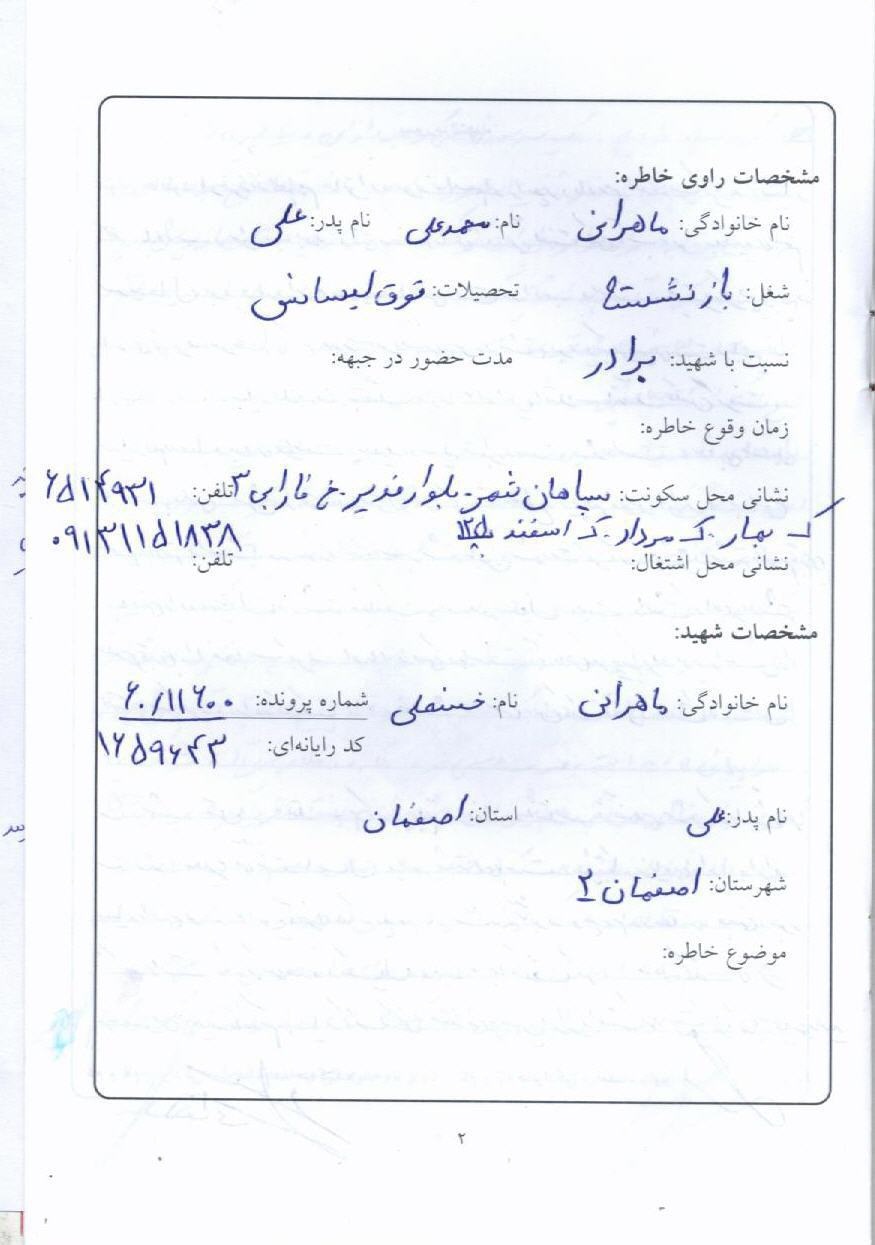 مشخصات راوی خاطره:
نام خانوادگی: ماهرانی نام: محمدعلی نام پدر: علی
شغل: بازنشسته تحصیلات: فوق لیسانس
نسبت با شهید: برادر مدت حضور در جبهه:
زمان وقوع خاطره:
نشانی محل سکونت: سپاهان شهر. بلوار غدیر. خ فارابی ۳ تلفن: ۶۵۱۴۹۳۱
ک بهار. ک مرداد. ک اسفند ۰۹۱۳۱۱۵۱۸۳۸
نشانی محل اشتغال: تلفن:
مشخصات شهید:
نام خانوادگی: ماهرانی نام: حسنعلی شماره پرونده: ۶۰/۱۱۶۰۰
کد رایانه‌ای: ۱۶۵۹۶۴۳
نام پدر: علی استان: اصفهان
شهرستان: اصفهان ۲
موضوع خاطره:
۲